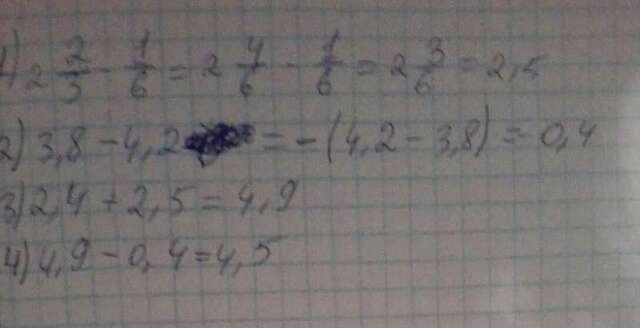 1) 2 2/3 - 1/6 = 2 4/6 - 1/6 = 2 3/6 = 2,5
2) 3,8 - 4,2 = -(4,2 - 3,8) = 0,4
3) 2,4 + 2,5 = 4,9
4) 4,9 - 0,4 = 4,5